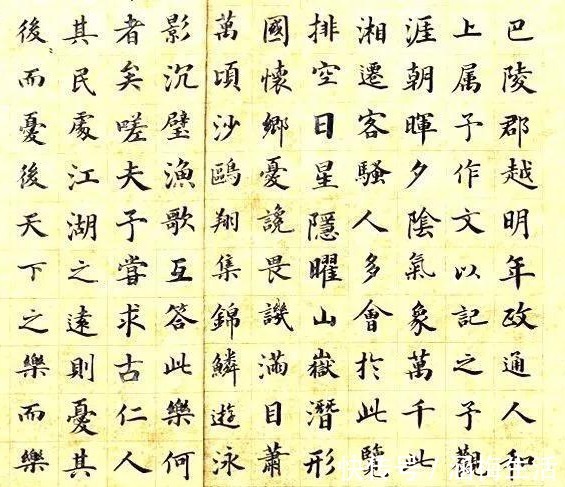 巴陵郡越明年政通人和
上属予作文以記之予觀
涯朝暉夕陰氣象萬千此
湘遷客騷人多會扵此覽
排空日星隱曜山嶽潛形
國懷鄉憂讒畏譏滿目蕭
萬頃沙鷗翔集錦鱗遊泳
影沉璧漁歌互答此樂何
者矣嗟夫予嘗求古仁人
其民處江湖之遠則憂其
後而憂後天下之樂而樂